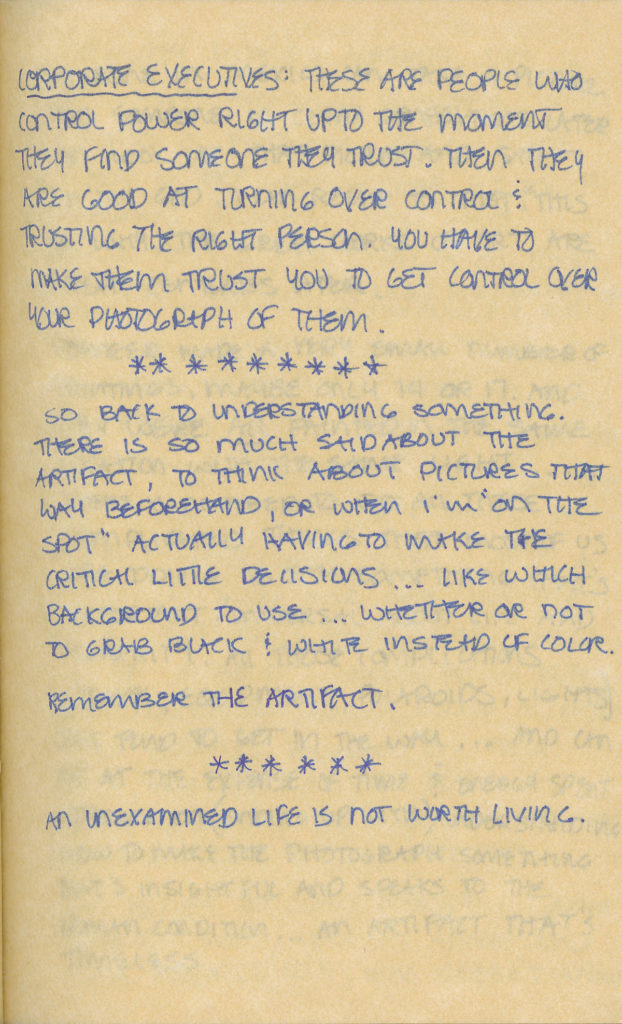 CORPORATE EXECUTIVES: THESE ARE PEOPLE WHO
CONTROL POWER RIGHT UP TO THE MOMENT
THEY FIND SOMEONE THEY TRUST. THEN THEY
ARE GOOD AT TURNING OVER CONTROL &
TRUSTING THE RIGHT PERSON. YOU HAVE TO
MAKE THEM TRUST YOU TO GET CONTROL OVER
YOUR PHOTOGRAPH OF THEM.
** * * * * * * *
SO BACK TO UNDERSTANDING SOMETHING.
THERE IS SO MUCH SAID ABOUT THE
ARTIFACT, TO THINK ABOUT PICTURES THAT
WAY BEFOREHAND, OR WHEN I'M "ON THE
SPOT" ACTUALLY HAVING TO MAKE THE
CRITICAL LITTLE DECISIONS... LIKE WHICH
BACKGROUND TO USE... WHETHER OR NOT
TO GRAB BLACK & WHITE INSTEAD OF COLOR.
REMEMBER THE ARTIFACT.
*** * * *
AN UNEXAMINED LIFE IS NOT WORTH LIVING.